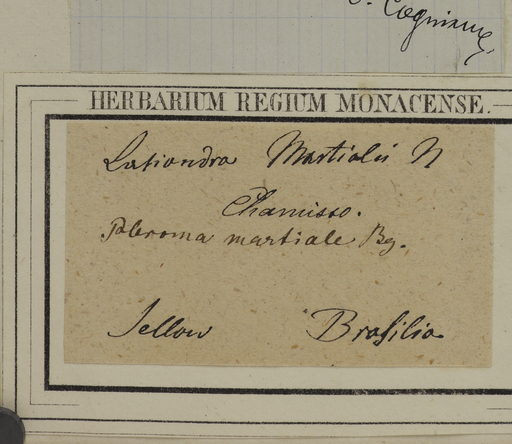 Cogniaux
HERBARIUM REGIUM MONACENSE.
Lasiandra Martialis N
Chamisso.
Pleroma martiale Bg.
Sellow Brasilia